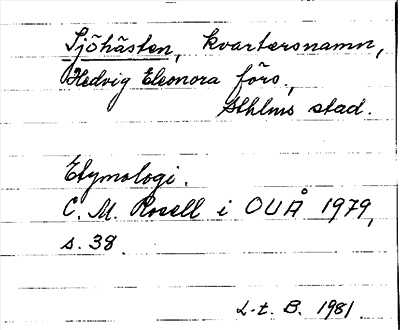 Sjöhästen, kvartersnamn,
Hedvig Eleonora förs.,
Sthlms stad.
Etymologi.
C. M. Rosell i OUÅ 1979,
s. 38
L.t. B. 1981